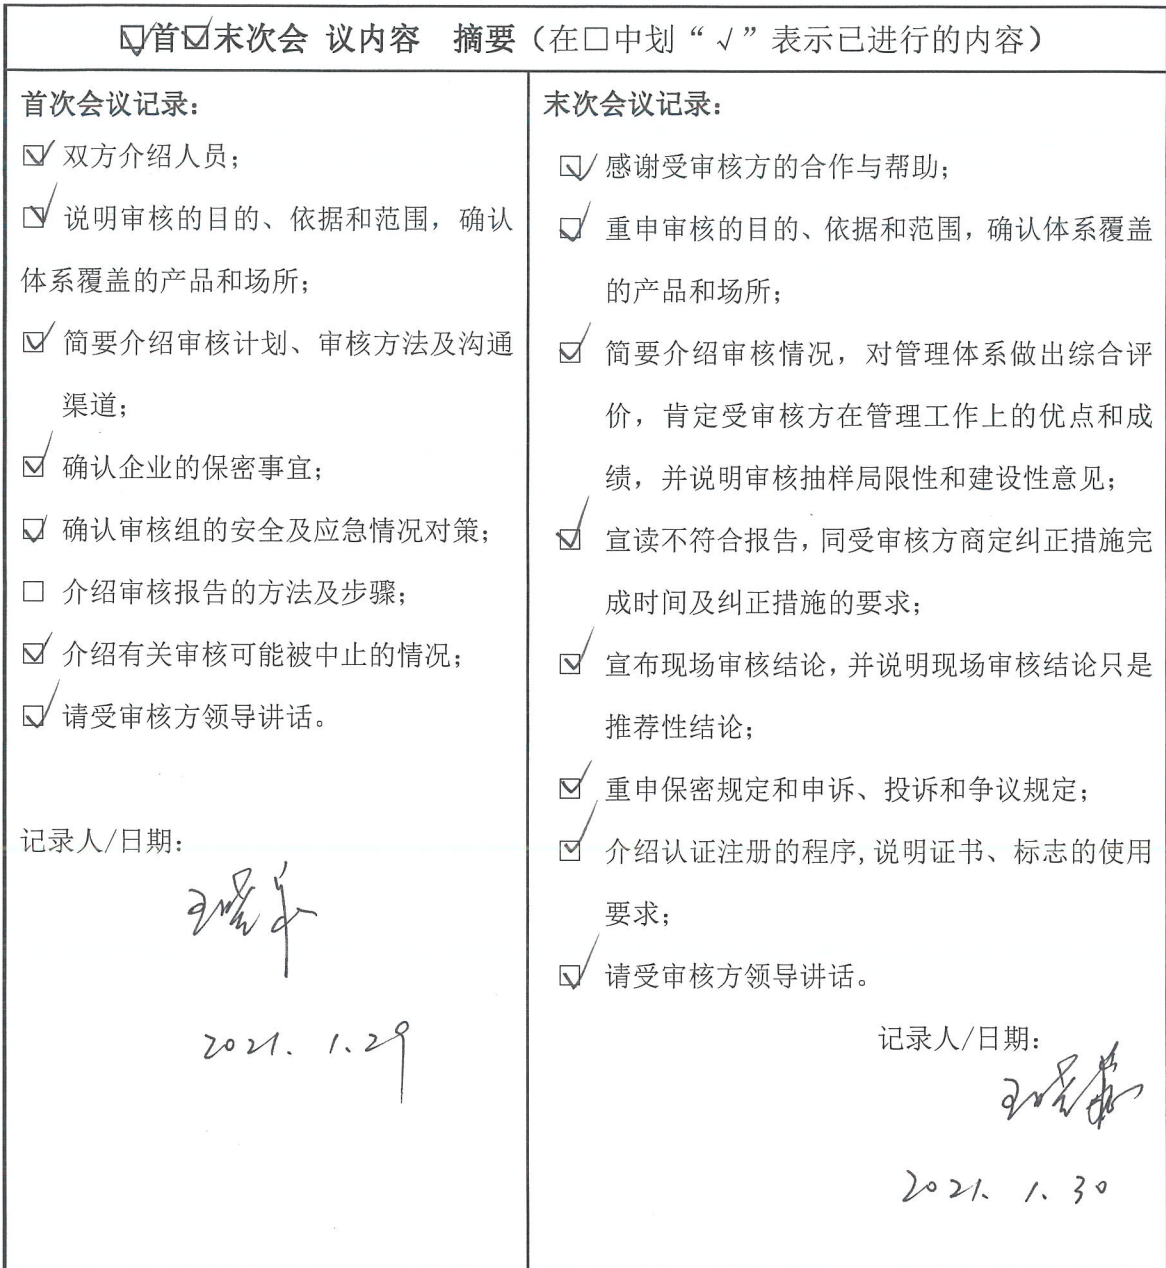 ☑首☑末次会 议内容 摘要(在□中划“√”表示已进行的内容)
首次会议记录:
☑ 双方介绍人员;
☑ 说明审核的目的、依据和范围,确认
体系覆盖的产品和场所;
☑ 简要介绍审核计划、审核方法及沟通
渠道;
☑ 确认企业的保密事宜;
☑ 确认审核组的安全及应急情况对策;
□ 介绍审核报告的方法及步骤;
☑ 介绍有关审核可能被中止的情况;
☑ 请受审核方领导讲话。
记录人/日期:
2021.1.29
末次会议记录:
☑ 感谢受审核方的合作与帮助;
☑ 重申审核的目的、依据和范围,确认体系覆盖
的产品和场所;
☑ 简要介绍审核情况,对管理体系做出综合评
价,肯定受审核方在管理工作上的优点和成
绩,并说明审核抽样局限性和建设性意见;
☑ 宣读不符合报告,同受审核方商定纠正措施完
成时间及纠正措施的要求;
☑ 宣布现场审核结论,并说明现场审核结论只是
推荐性结论;
☑ 重申保密规定和申诉、投诉和争议规定;
☑ 介绍认证注册的程序,说明证书、标志的使用
要求;
☑ 请受审核方领导讲话。
记录人/日期:
2021.1.30